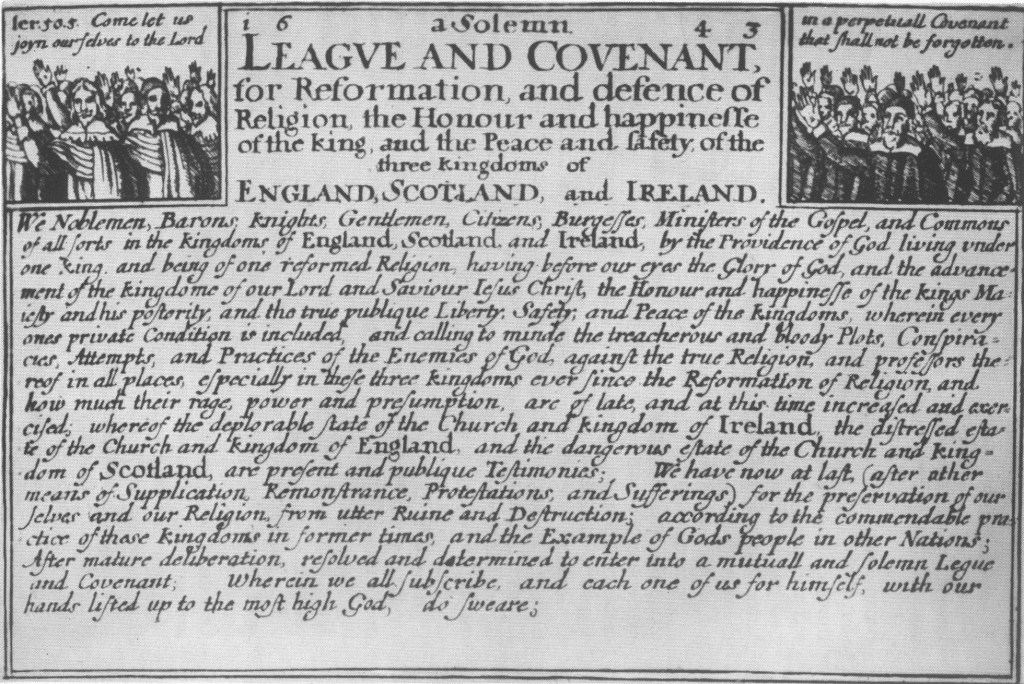 Ier. 50.5. Come let us
joyn our selves to the Lord
1 6 4 3
a Solemn
LEAGVE AND COVENANT,
for Reformation, and defence of
Religion, the Honour and happinesse
of the king, and the Peace and safety of the
three kingdoms of
ENGLAND, SCOTLAND, and IRELAND.
in a perpetuall Covenant
that shall not be forgotten.
We Noblemen, Barons, Knights, Gentlemen, Citizens, Burgesses, Ministers of the Gospel, and Commons
of all sorts in the kingdoms of England, Scotland, and Ireland, by the Providence of God living vnder
one King, and being of one reformed Religion, having before our eyes the Glory of God, and the advance-
ment of the kingdome of our Lord and Saviour Iesus Christ, the Honour and happinesse of the kings Ma-
iesty and his posterity, and the true publique Liberty, Safety, and Peace of the kingdoms, wherein every
ones private Condition is included, and calling to minde the treacherous and bloody Plots, Conspira-
cies, Attempts, and Practices of the Enemies of God, against the true Religion, and professors the-
reof in all places, especially in these three kingdoms ever since the Reformation of Religion, and
how much their rage, power and presumption, are of late, and at this time increased and exer-
cised; whereof the deplorable state of the Church and kingdom of Ireland, the distressed esta-
te of the Church and kingdom of England, and the dangerous estate of the Church and king-
dom of Scotland, are present and publique Testimonies; We have now at last, (after other
means of Supplication, Remonstrance, Protestations, and Sufferings) for the preservation of our
selves and our Religion, from utter Ruine and Destruction; according to the commendable pra-
ctice of these Kingdoms in former times, and the Example of Gods people in other Nations;
After mature deliberation, resolved and determined to enter into a mutuall and solemn Legue
and Covenant; Wherein we all subscribe, and each one of us for himself, with our
hands lifted up to the most high God, do sweare;